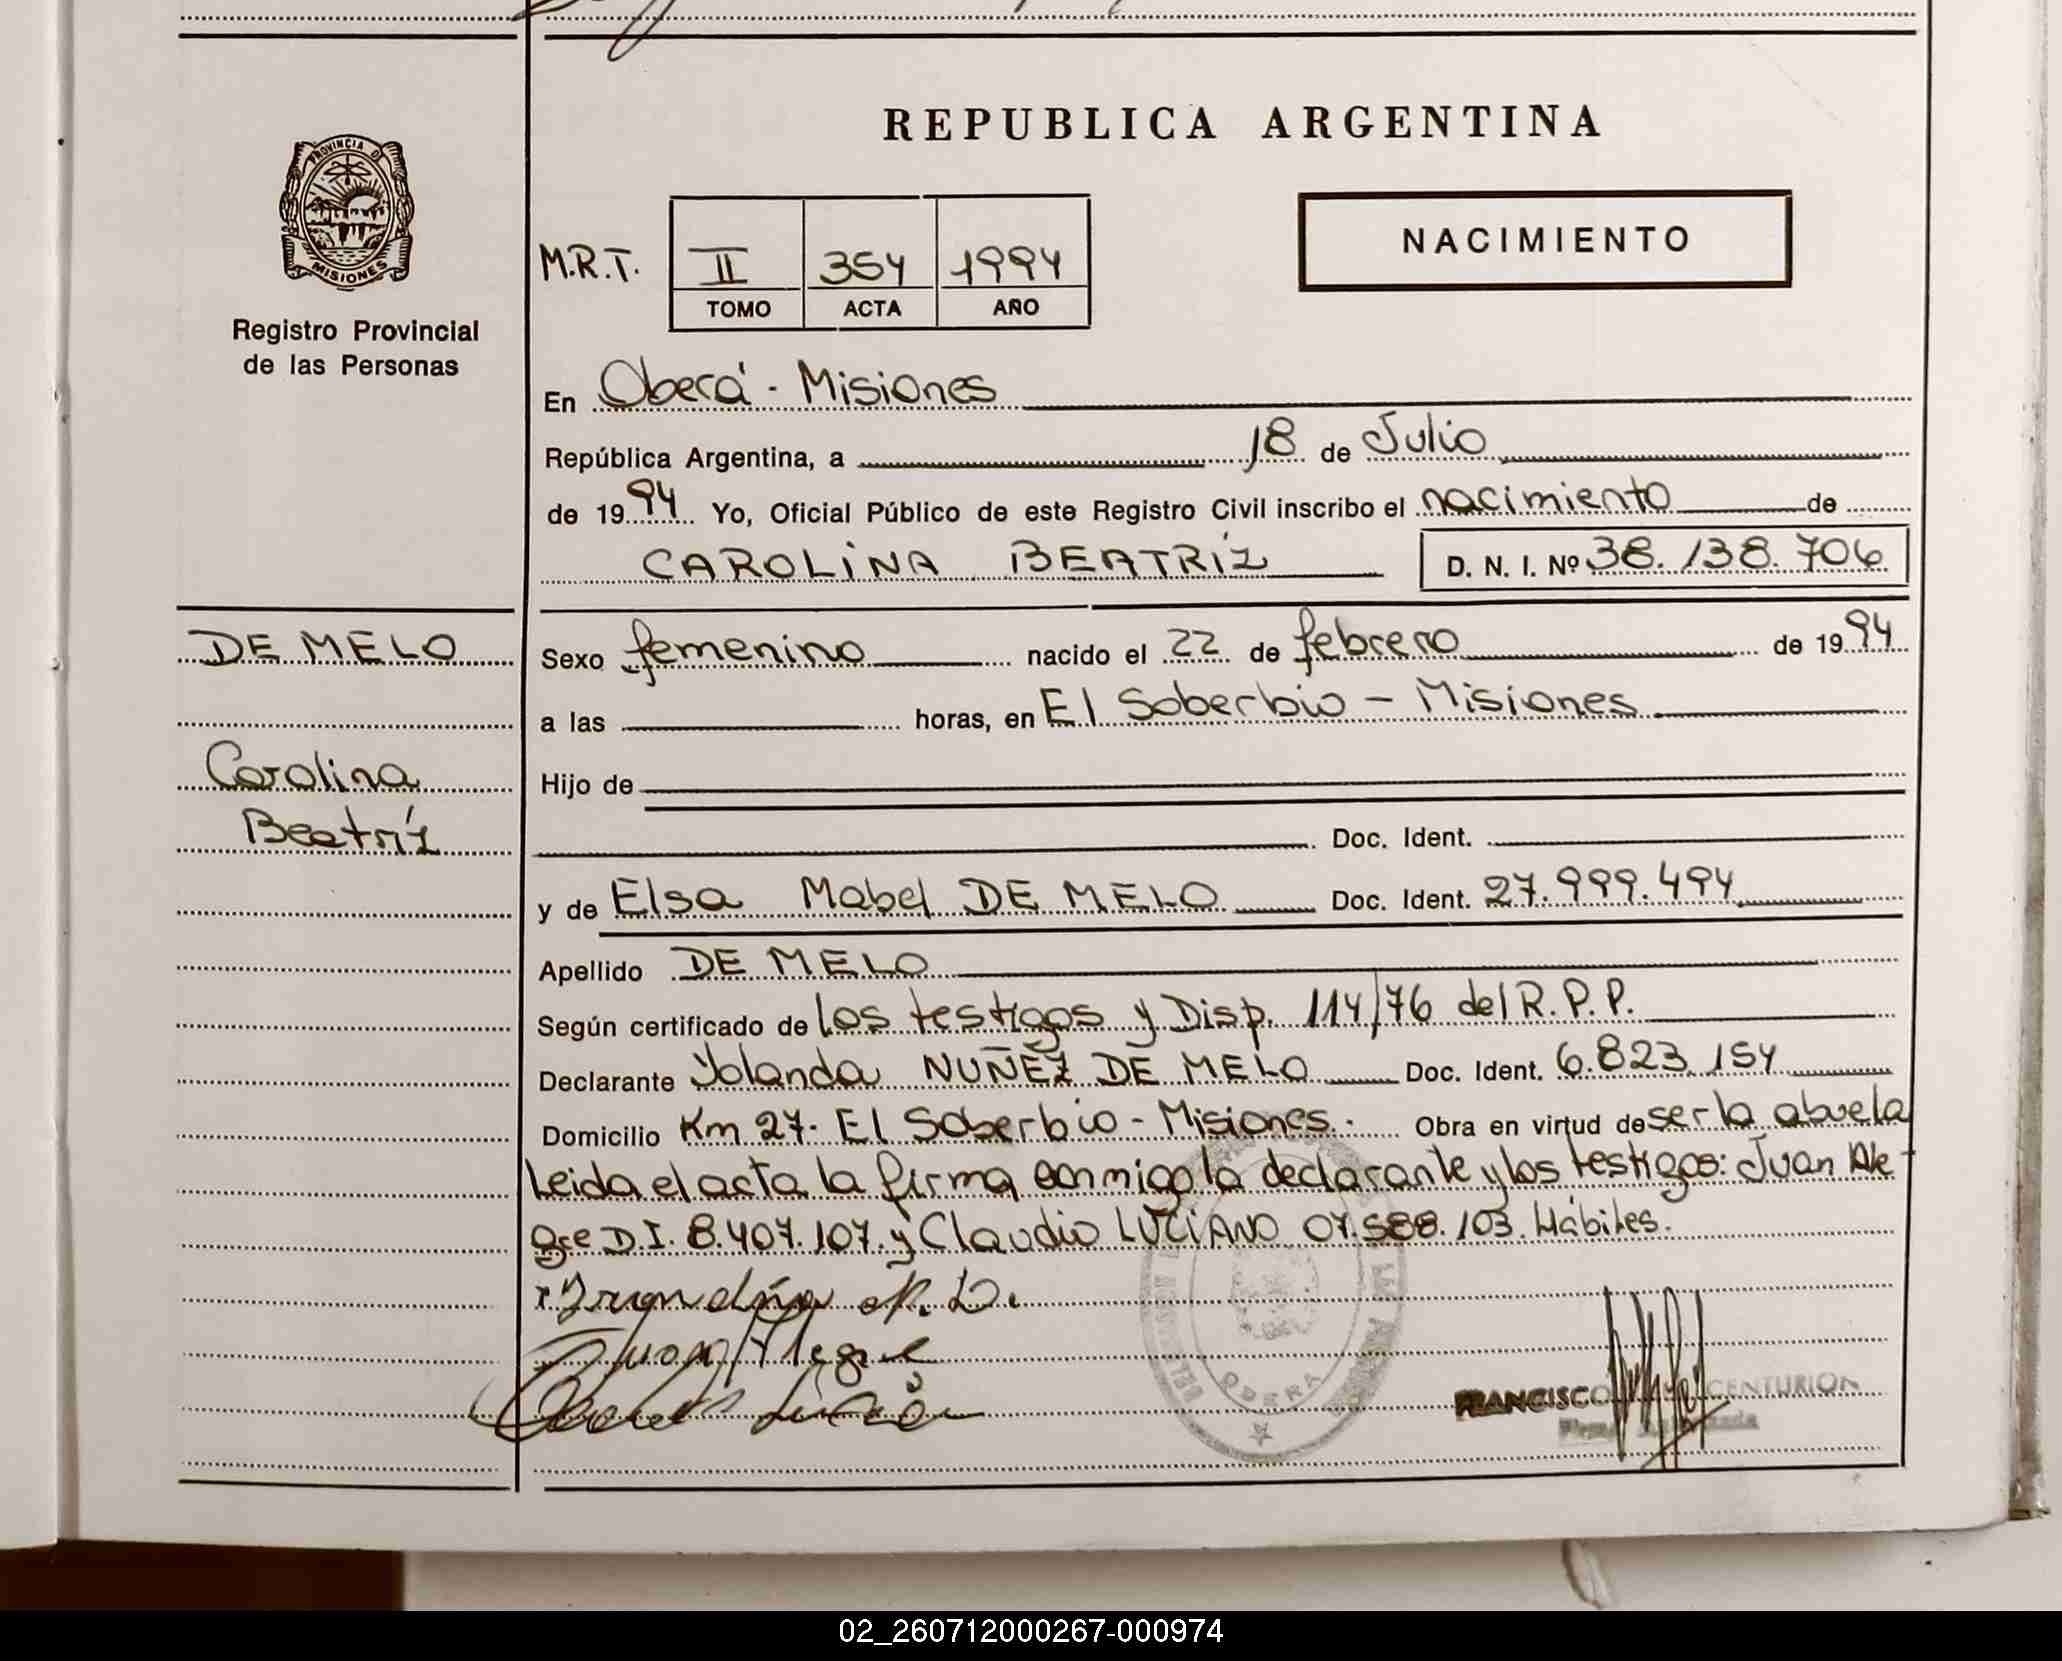 REPUBLICA ARGENTINA
PROVINCIA D
MISIONES
Registro Provincial
de las Personas
NACIMIENTO
M.R.T. II 354 1994
TOMO ACTA AÑO
En Oberá - Misiones
República Argentina, a 18 de Julio
de 1994 Yo, Oficial Público de este Registro Civil inscribo el nacimiento de
CAROLINA BEATRÍZ D. N. I. Nº 38.138.706
DE MELO
Carolina
Beatríz
Sexo femenino nacido el 22 de febrero de 1994
a las horas, en El Soberbio - Misiones
Hijo de
Doc. Ident.
y de Elsa Mabel DE MELO Doc. Ident. 27.999.494
Apellido DE MELO
Según certificado de los testigos y Disp. 114/76 del R.P.P.
Declarante Yolanda NUÑEZ DE MELO Doc. Ident. 6.823.154
Domicilio Km 27. El Soberbio - Misiones. Obra en virtud de ser la abuela
Leida el acta la firma conmigo la declarante y los testigos: Juan Ale-
gre D.I. 8.407.107. y Claudio LUCIANO 07.588.103. Hábiles.
Juan Alegre
OBERA
FRANCISCO CENTURION
02_260712000267-000974